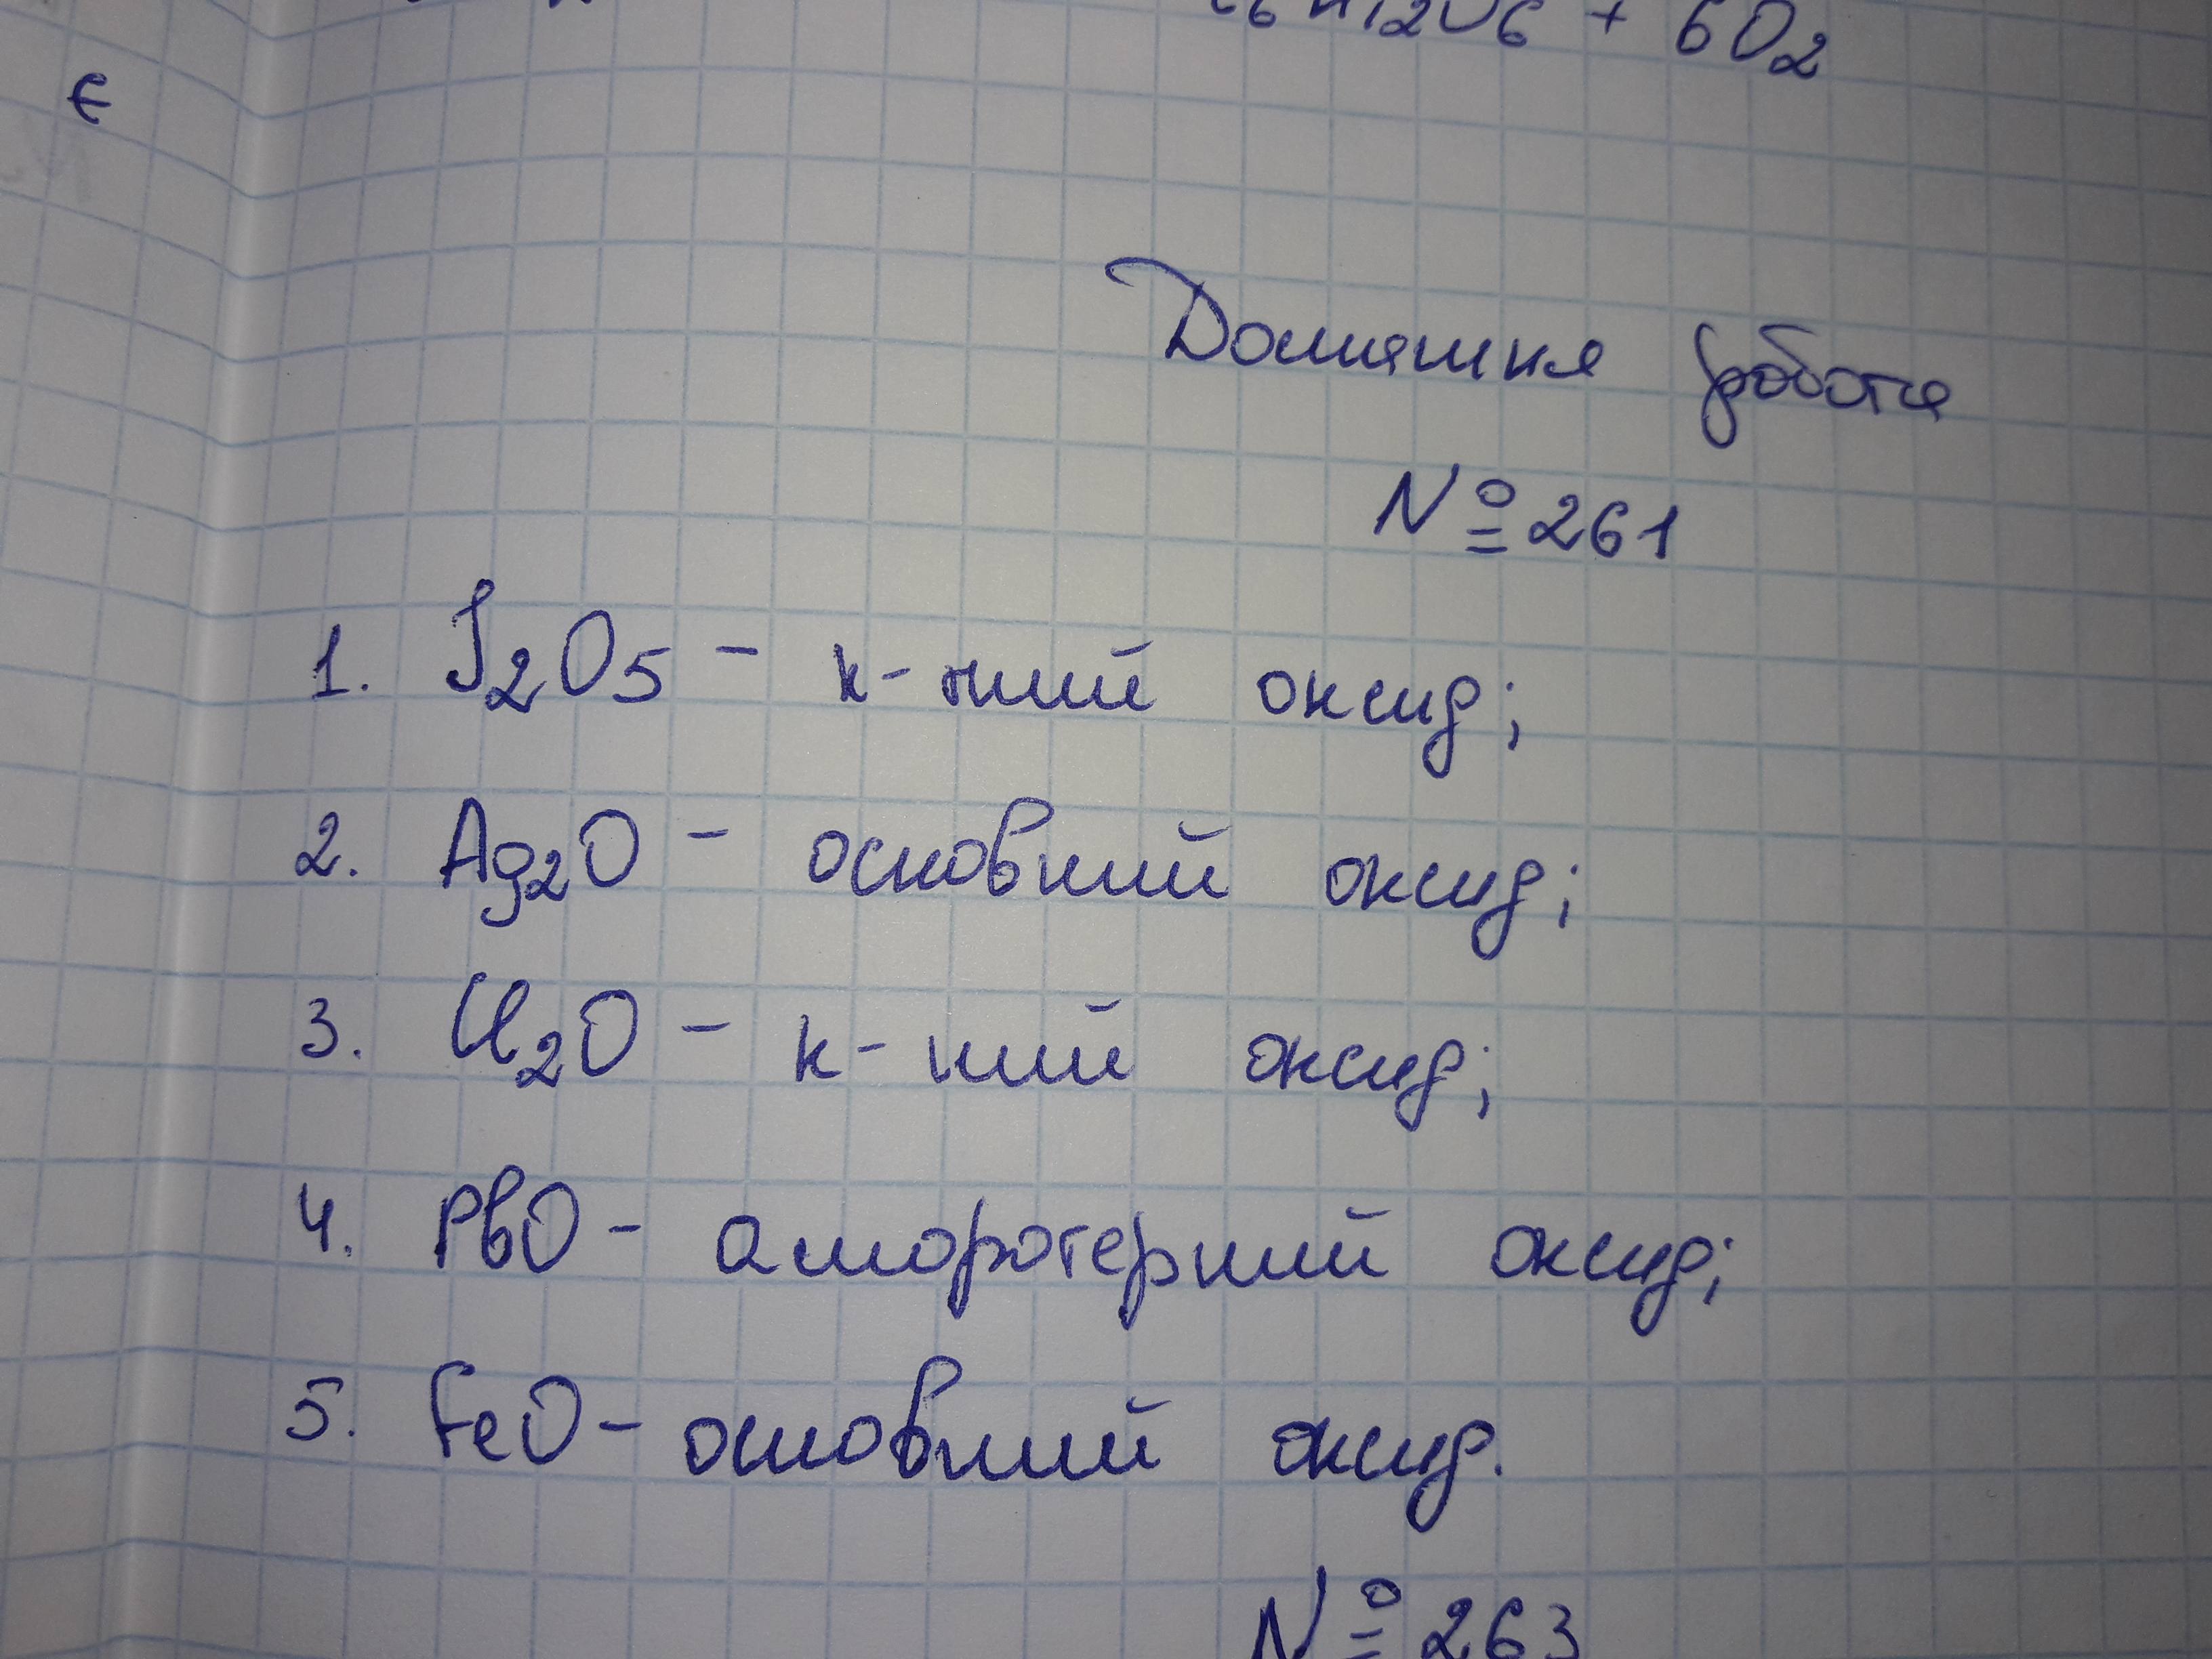 C6H12O6 + 6O2
є
Домашня робота
№ 261
1. I2O5 - к-ний оксид;
2. Ag2O - основний оксид;
3. Cl2O - к-ний оксид;
4. PbO - амфотерний оксид;
5. FeO - основний оксид.
№ 263